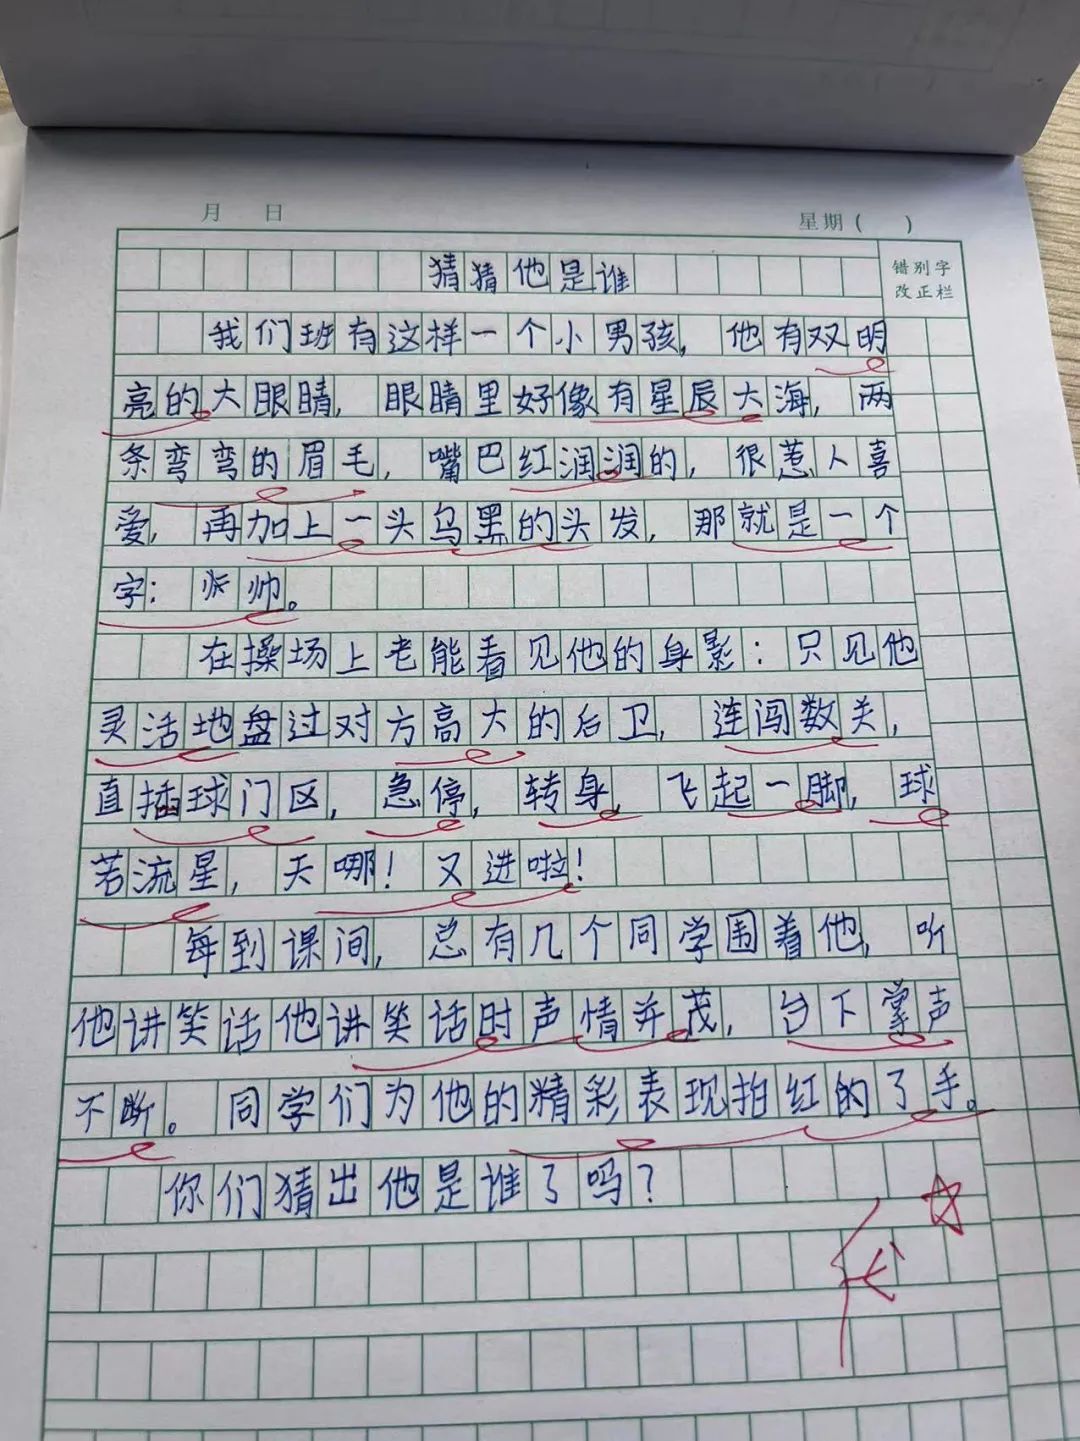 月 日 星期( )
错别字
改正栏
猜猜他是谁
我们班有这样一个小男孩,他有双明
亮的大眼睛,眼睛里好像有星辰大海,两
条弯弯的眉毛,嘴巴红润润的,很惹人喜
爱,再加上一头乌黑的头发,那就是一个
字:帅。
在操场上老能看见他的身影:只见他
灵活地盘过对方高大的后卫,连闯数关,
直插球门区,急停,转身,飞起一脚,球
若流星,天哪!又进啦!
每到课间,总有几个同学围着他,听
他讲笑话他讲笑话时声情并茂,台下掌声
不断。同学们为他的精彩表现拍红的了手。
你们猜出他是谁了吗?
优